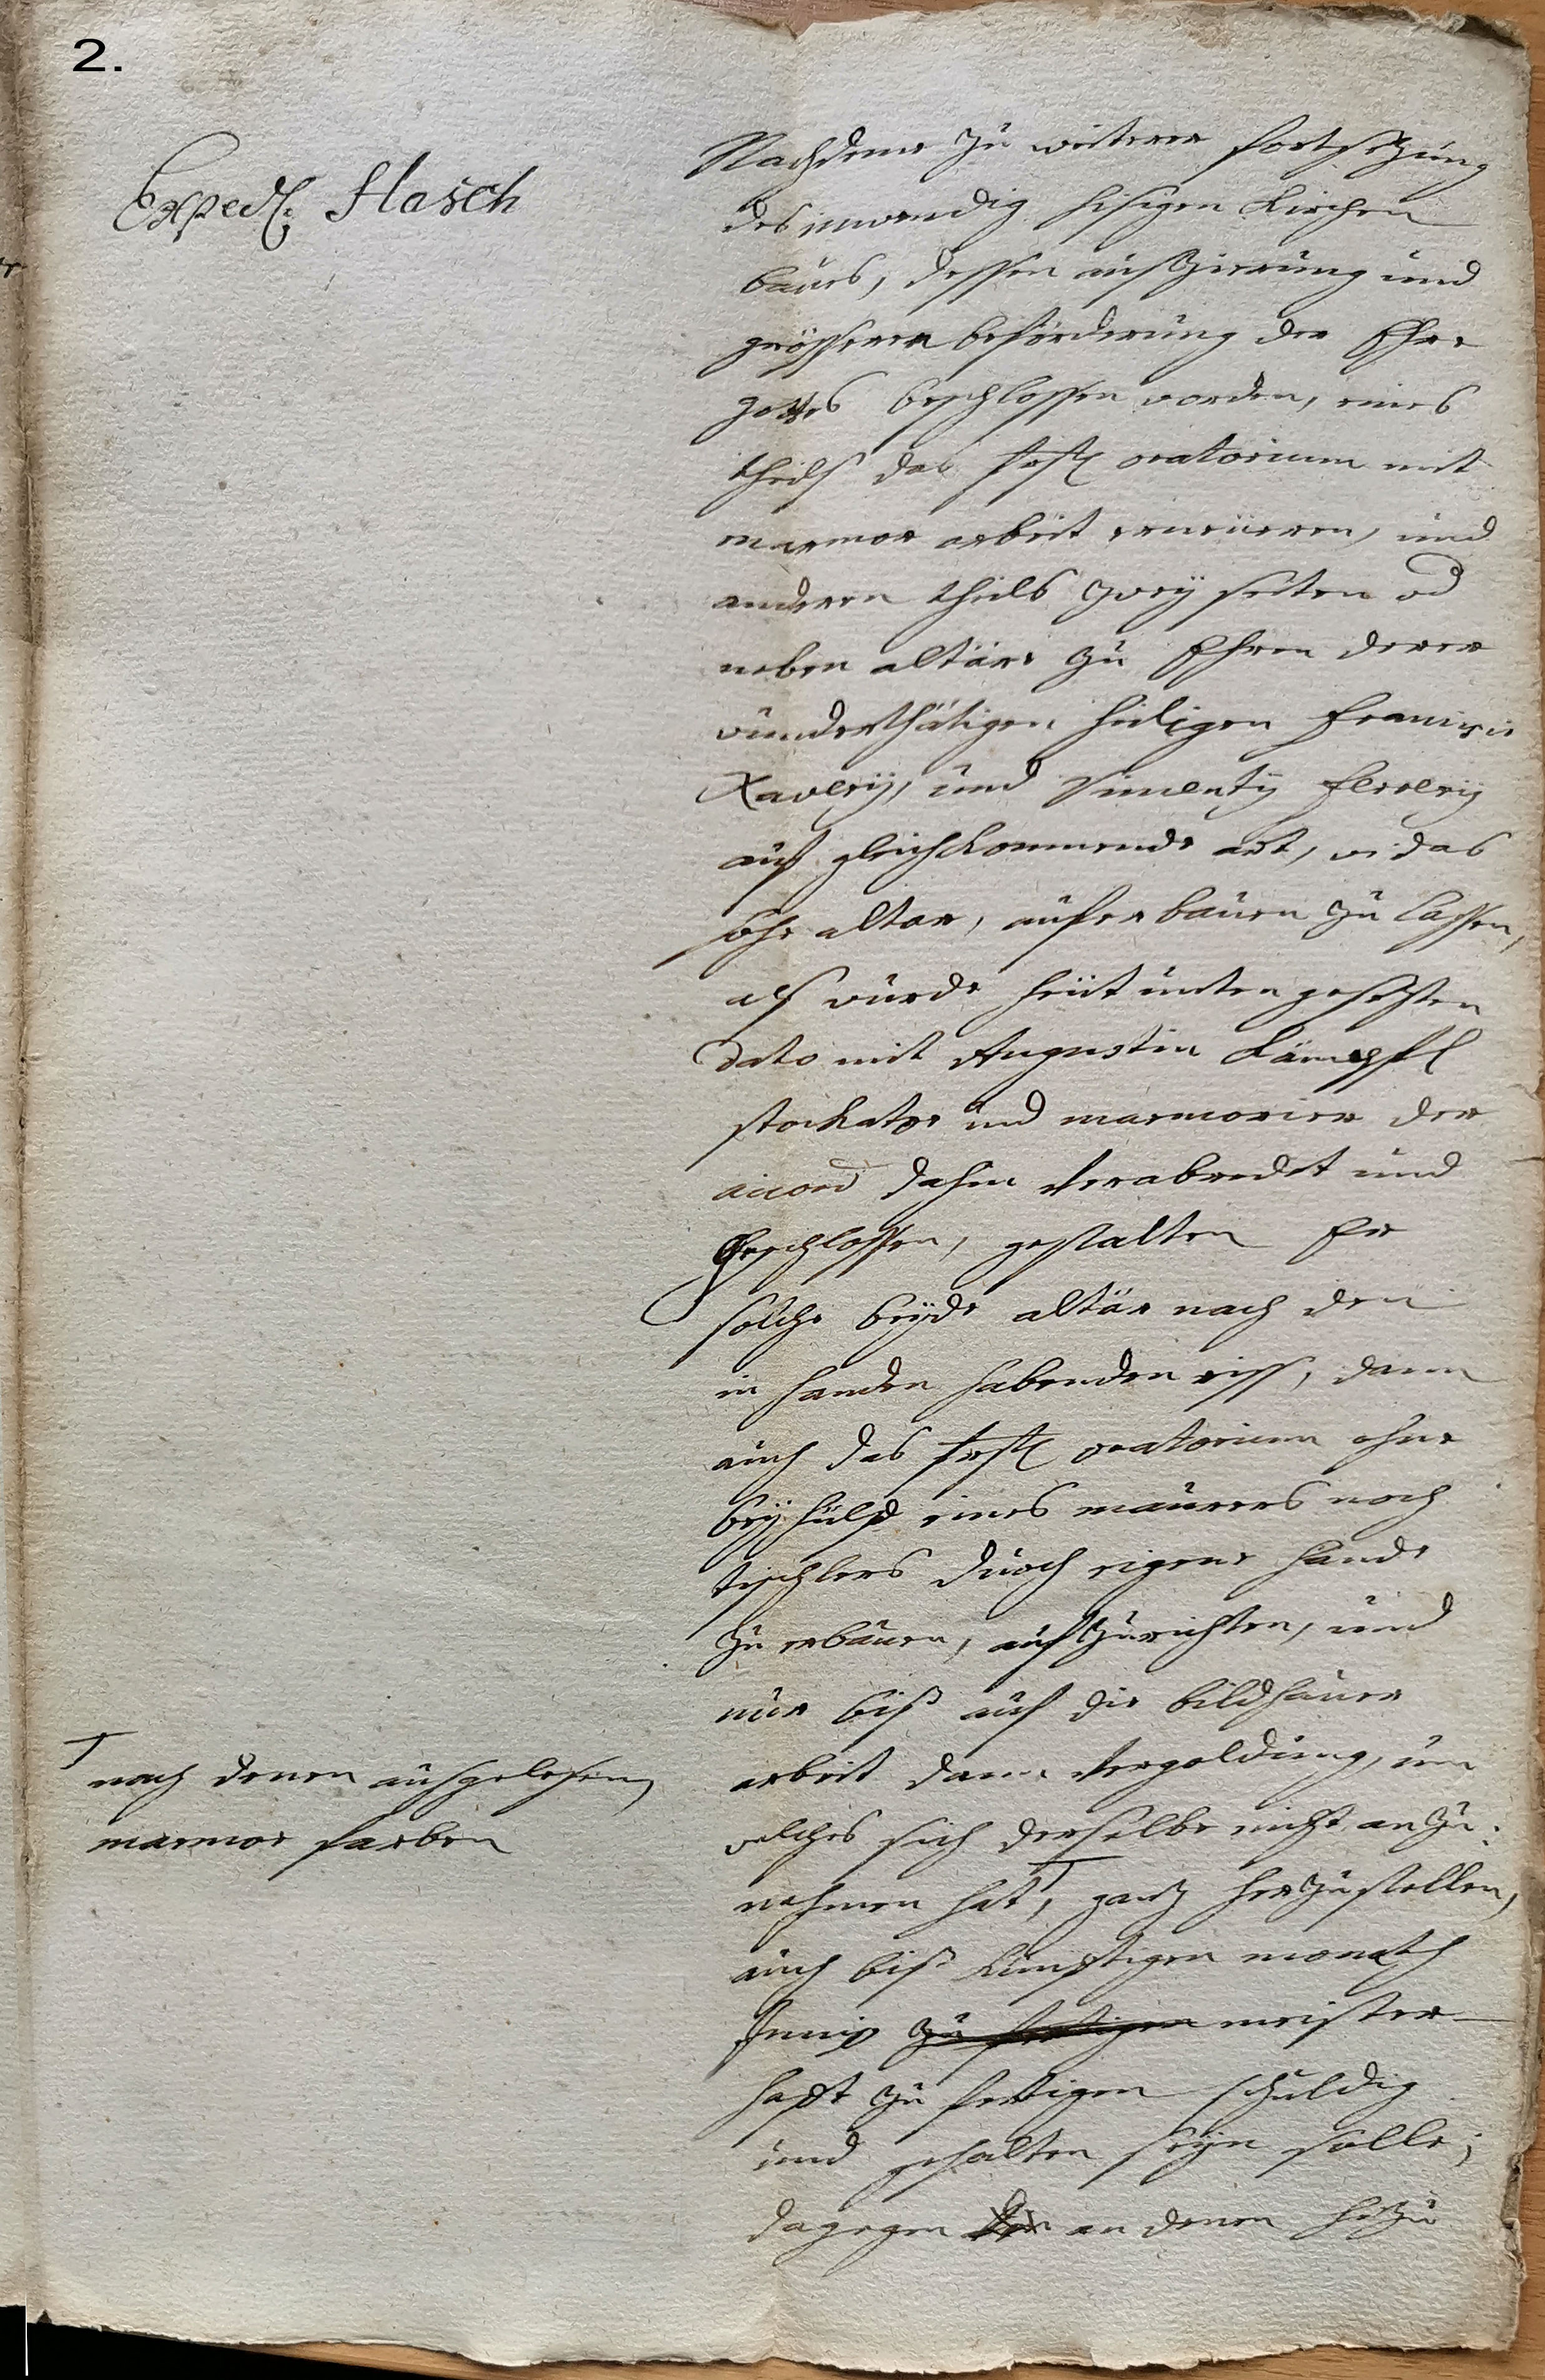 2.
Exped. Hasch
Nachdeme zu weiterer fortsezung
des inwendig hisigen Kirchen
baues, dessen außzierung und
grösseren beförderung der Ehre
gottes beschlossen worden, eines
theils das frstl oratorium mit
marmor arbeit erneüeren, und
anderen theils zweÿ seiten od
neben altäre zu Ehren derer
wunderthätigen heiligen Francisci
Xaverij, und Vincentij Ferrerij
auf gleichkommende art, wi das
hohe altar, auferbauen zu lassen,
als wurde heüt unten gesezten
dato mit Augustin Kämpfl
stockator und marmorier der
accord dahin verabredet und
Geschlossen, gestalten Er
solche beÿde altär nach den
in handen habenden riss, dann
auch das frstl oratorium ohne
beÿhülf eines maurers noch
tischlers durch eigene hande
zu erbauen, aufzurichten, und
nur biß auf die bildhauer
arbeit dann vergoldung, um
welches sich derselbe nicht anzu:
nehmen hat, ganz herzustellen,
nach denen ausgelesenen
marmor farben
auch biß künfftigen monath
Junij zu fertigen meister
hafft zu fertigen schuldig
und gehalten seÿn solle;
dagegen an denen hizu